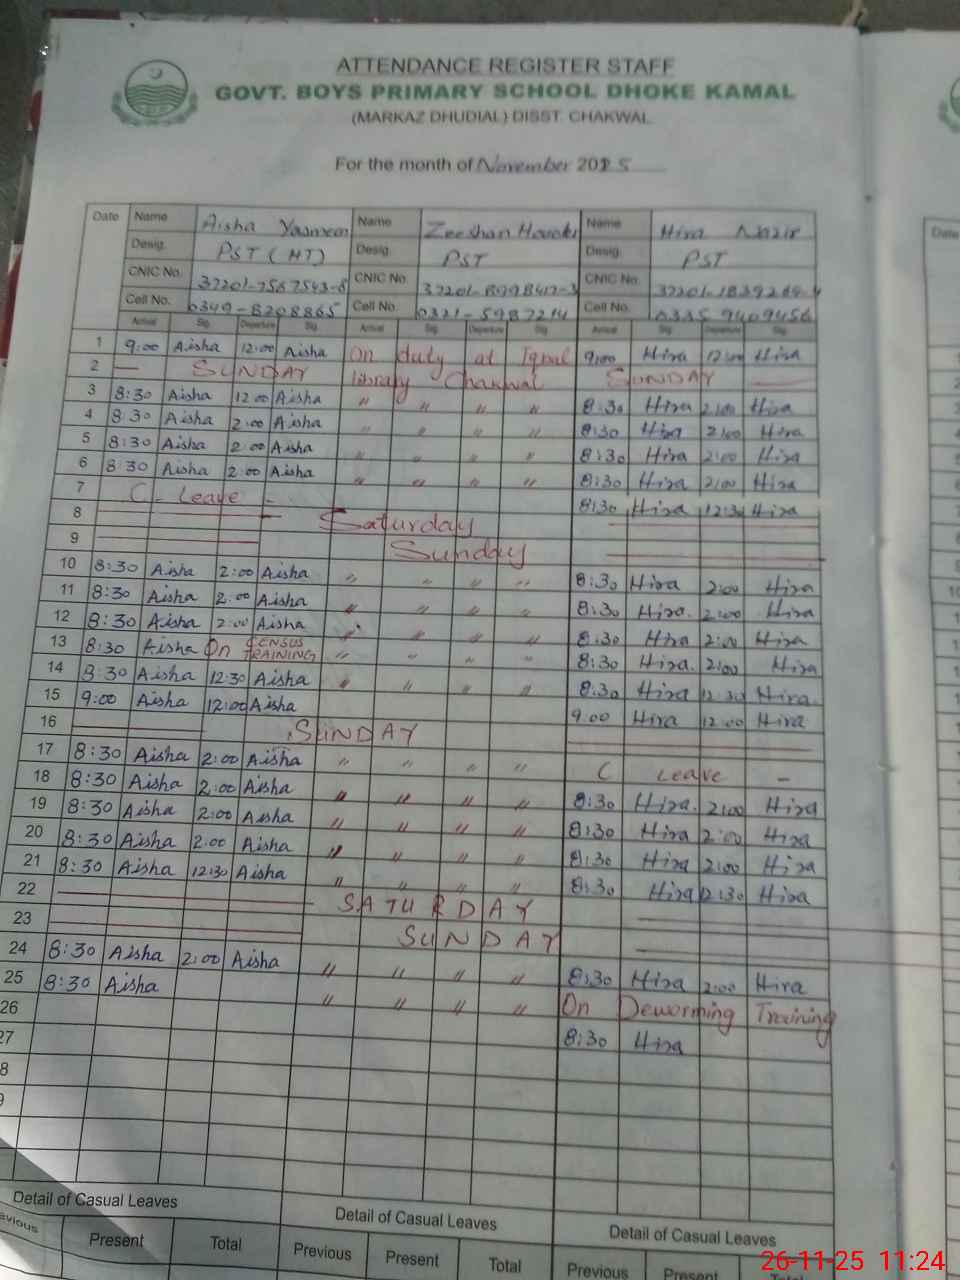 ATTENDANCE REGISTER STAFF
GOVT. BOYS PRIMARY SCHOOL DHOKE KAMAL
(MARKAZ DHUDIAL) DISST. CHAKWAL
For the month of November 2025
Date Name Aisha Yasmeen Name Zeeshan Name Hira Nazir
Desig. PST (HT) Desig. PST Desig. PST
CNIC No. 37201-7567543-8 CNIC No. CNIC No.
Cell No. 0349-8208865 Cell No. 0321-5987214 Cell No. 0335 9409456
Arrival Sig. Departure Sig. Arrival Sig. Departure Sig. Arrival Sig. Departure Sig.
1 9:00 Aisha 12:00 Aisha On duty at Iqbal 9:00 Hira 12:00 Hira
2 — SUNDAY library Chakwal SUNDAY
3 8:30 Aisha 12:00 Aisha " " " " 8:30 Hira 2:00 Hira
4 8:30 Aisha 2:00 Aisha " " " " 8:30 Hira 2:00 Hira
5 8:30 Aisha 2:00 Aisha " " " " 8:30 Hira 2:00 Hira
6 8:30 Aisha 2:00 Aisha " " " " 8:30 Hira 2:00 Hira
7 C - Leave - 8:30 Hira 12:30 Hira
8 Saturday
9 Sunday
10 8:30 Aisha 2:00 Aisha " " " " 8:30 Hira 2:00 Hira
11 8:30 Aisha 2:00 Aisha " " " " 8:30 Hira. 2:00 Hira
12 8:30 Aisha 2:00 Aisha " " " " 8:30 Hira 2:00 Hira
13 8:30 Aisha On CENSUS TRAINING " " " " 8:30 Hira. 2:00 Hira
14 8:30 Aisha 12:30 Aisha " " " " 8:30 Hira 12:30 Hira.
15 9:00 Aisha 12:00 Aisha 9:00 Hira 12:00 Hira
16 SUNDAY
17 8:30 Aisha 2:00 Aisha " " " " C Leave -
18 8:30 Aisha 2:00 Aisha " " " " 8:30 Hira. 2:00 Hira
19 8:30 Aisha 2:00 Aisha " " " " 8:30 Hira 2:00 Hira
20 8:30 Aisha 2:00 Aisha " " " " 8:30 Hira 2:00 Hira
21 8:30 Aisha 12:30 Aisha " " " " 8:30 Hira 12:30 Hira
22 SATURDAY
23 SUNDAY
24 8:30 Aisha 2:00 Aisha " " " " 8:30 Hira 2:00 Hira
25 8:30 Aisha " " " " On Deworming Training
26 8:30 Hira
27
8
9
Detail of Casual Leaves Detail of Casual Leaves Detail of Casual Leaves
Present Total Previous Present Total Previous Present
26-11-25 11:24
Date